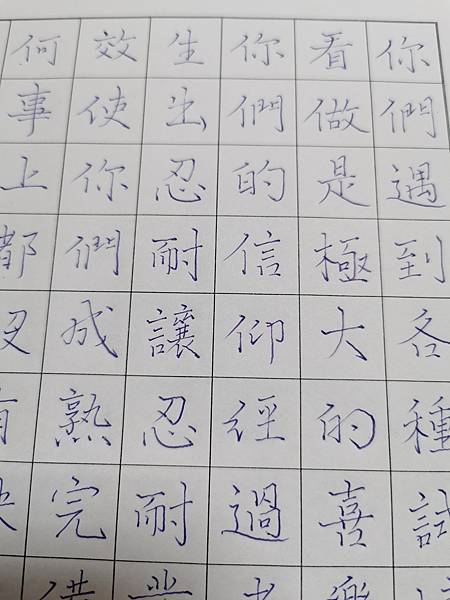 你們遇到各種試
看做是極大的喜樂
你們的信仰經過
生出忍耐讓忍耐
效使你們成熟完備
何事上都沒有缺